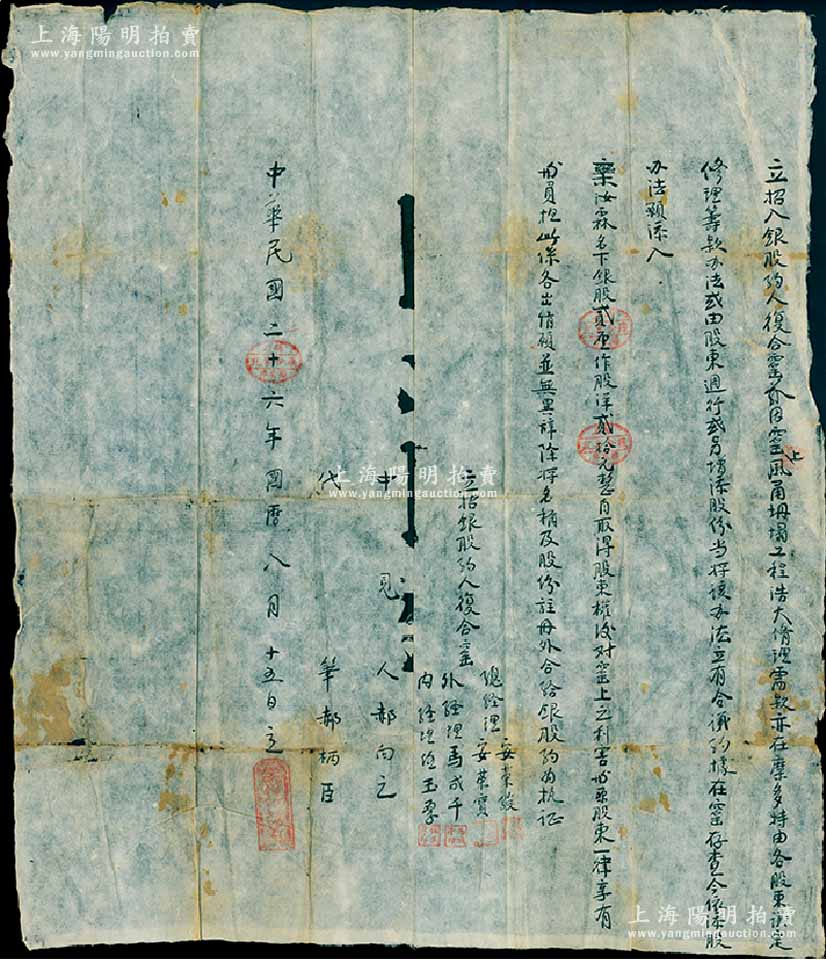 上海陽明拍賣
www.yangmingauction.com
立招入銀股約人復合窰茲因窰上風甬坍塌工程浩大脩理需款亦在羣多特由各股東議定
修理籌款办法或由股東週行或另增添股份当将該办法立有合議約據在窰存查今依添股
办法願添入
汝霖名下銀股貳厘作股洋貳拾元整自取得股東權後对窰上之利害與原股東一律享有
與負担此係各出情願並無異辞除将名稱及股份註册外合給銀股約為执证
立招銀股約人復合窰
總經理
安榮
安榮寶
外經理馬成千
内經理 玉奉
中見人郝向之
代筆郝炳臣
中華民國二十六年國曆八月十五日立
上海陽明拍賣
www.yangmingauction.com
上海陽明拍賣
www.yangmingauction.com